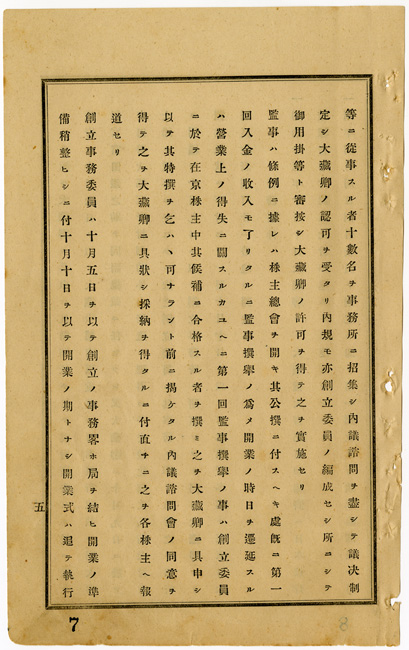 等ニ從事スル者十數名ヲ事務所ニ招集シ內議諮問ヲ盡シテ議决制
定シ大藏卿ノ認可ヲ受タリ內規モ亦創立委員ノ編成セシ所ニシテ
御用掛等ト審按シ大藏卿ノ許可ヲ得テ之ヲ實施セリ
監事ハ條例ニ據レハ株主總會ヲ開キ其公撰ニ付スヘキ處旣ニ第一
回入金ノ收入モ了リタルニ監事撰擧ノ爲メ開業ノ時日ヲ遷延スル
ハ營業上ノ得失ニ關スルカユヘニ第一回監事撰擧ノ事ハ創立委員
ニ於テ在京株主中其候補ニ合格スル者ヲ撰ミ之ヲ大藏卿ニ具申シ
以テ其特撰ヲ乞ハヽ可ナラント前ニ揭ケタル內議諮問會ノ同意ヲ
得テ之ヲ大藏卿ニ具狀シ採納ヲ得タルニ付直チニ之ヲ各株主ヘ報
道セリ
創立事務委員ハ十月五日ヲ以テ創立ノ事務畧ホ局ヲ結ヒ開業ノ準
備稍整ヒシニ付十月十日ヲ以テ開業ノ期トナシ開業式ハ退テ執行
五
7
8